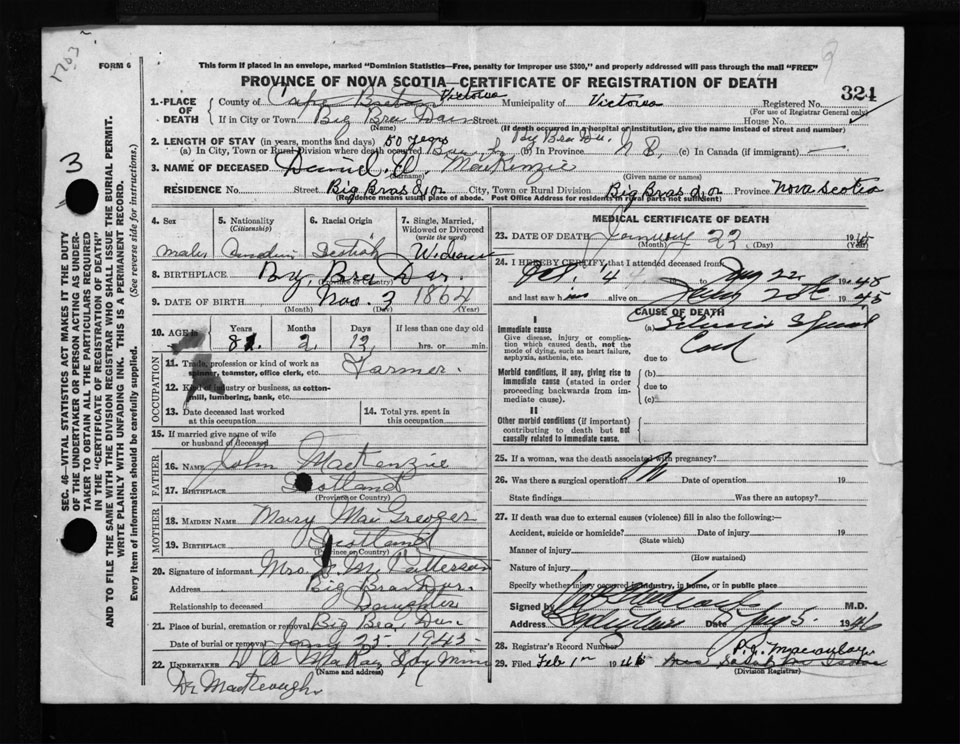 1703
FORM 6
This form if placed in an envelope, marked "Dominion Statistics—Free, penalty for improper use $300," and properly addressed will pass through the mail "FREE"
PROVINCE OF NOVA SCOTIA—CERTIFICATE OF REGISTRATION OF DEATH
324
1.-PLACE OF DEATH
County of Cape Breton Victoria Municipality of Victoria Registered No.
(For use of Registrar General only)
If in City or Town Big Bras Dor Street House No.
(Name) (If death occurred in a hospital or institution, give the name instead of street and number)
2. LENGTH OF STAY (in years, months and days) 50 years
(a) In City, Town or Rural Division where death occurred (b) In Province N S. (c) In Canada (if immigrant)
3. NAME OF DECEASED Daniel MacKenzie
(Surname) (Given name or names)
RESIDENCE No. Street Big Bras d'or City, Town or Rural Division Big Bras d'or Province Nova Scotia
(Residence means usual place of abode. Post Office Address for residents in rural parts not sufficient)
4. Sex
male
5. Nationality
(Citizenship)
Canadian
6. Racial Origin
Scotish
7. Single, Married, Widowed or Divorced
(write the word)
Widower
8. BIRTHPLACE Big Bras Dor.
9. DATE OF BIRTH Nov. 3 1864
(Month) (Day) (Year)
10. AGE
Years Months Days If less than one day old
2 12 hrs. or min.
OCCUPATION
11. Trade, profession or kind of work as
spinner, teamster, office clerk, etc. Farmer.
12. Kind of industry or business, as cotton-
mill, lumbering, bank, etc.
13. Date deceased last worked
at this occupation
14. Total yrs. spent in
this occupation
15. If married give name of wife
or husband of deceased
FATHER
16. NAME John MacKenzie
17. BIRTHPLACE Scotland
(Province or Country)
MOTHER
18. MAIDEN NAME Mary MacGreoger
19. BIRTHPLACE Scotland
(Province or Country)
20. Signature of informant Mrs. M. Patterson
Address Big Bras Dor.
Relationship to deceased Daughter
21. Place of burial, cremation or removal Big Bras Dor.
Date of burial or removal Jany 25 - 1945
22. UNDERTAKER MacKay Sydney Mines
(Name and address)
Dr MacKeough
MEDICAL CERTIFICATE OF DEATH
23. DATE OF DEATH January 22 19
(Month) (Day) (Year)
24. I HEREBY CERTIFY that I attended deceased from
Oct. 4 to Jany 22 1945
and last saw him alive on 1945
CAUSE OF DEATH
I
Immediate cause
Give disease, injury or compli-
cation which caused death, not the
mode of dying, such as heart failure,
asphyxia, asthenia, etc.
(a) Spinal
Cord
due to
Morbid conditions, if any, giving rise to
immediate cause (stated in order
proceeding backwards from im-
mediate cause).
(b)
due to
(c)
II
Other morbid conditions (if important)
contributing to death but not
causally related to immediate cause.
25. If a woman, was the death associated with pregnancy?
26. Was there a surgical operation? No Date of operation 19
State findings Was there an autopsy?
27. If death was due to external causes (violence) fill in also the following:
Accident, suicide or homicide? Date of injury 19
(State which)
Manner of injury
(How sustained)
Nature of injury
Specify whether injury occurred in industry, in home, or in public place
Signed by M.D.
Address Sydney Mines Date 5. 1946
28. Registrar's Record Number
29. Filed Feb 1st 1946
(Division Registrar)
3
SEC. 46—VITAL STATISTICS ACT MAKES IT THE DUTY
OF THE UNDERTAKER OR PERSON ACTING AS UNDER-
TAKER TO OBTAIN ALL THE PARTICULARS REQUIRED
IN THE "CERTIFICATE OF REGISTRATION OF DEATH"
AND TO FILE THE SAME WITH THE DIVISION REGISTRAR WHO SHALL ISSUE THE BURIAL PERMIT.
WRITE PLAINLY WITH UNFADING INK. THIS IS A PERMANENT RECORD.
Every item of information should be carefully supplied. (See reverse side for instructions.)